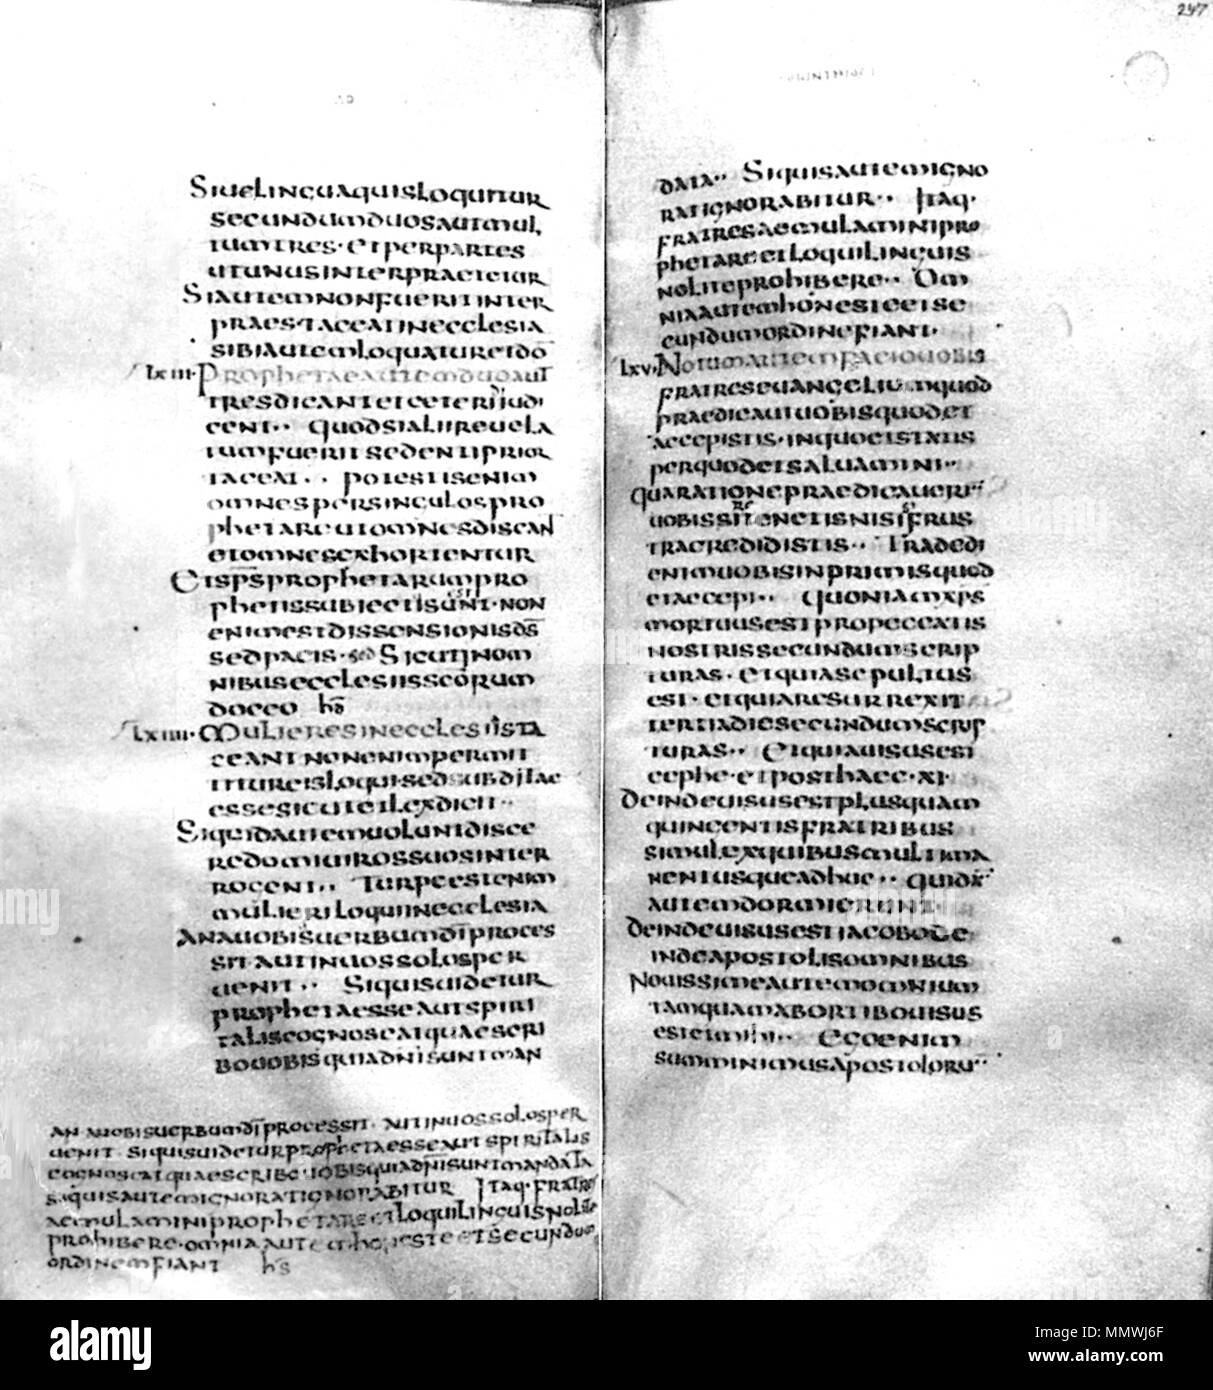 247
SIUELINGUAQUISLOQUITUR
SECUNDUMDUOSAUTMUL
TUMTRES·ETPERPARTES
UTUNUSINTERPRAETETUR
SIAUTEMNONFUERITINTER
PRAES·TACEATINECCLESIA
SIBIAUTEMLOQUATURETDŌ
LXIII·PROPHETAEAUTEMDUOAUT
TRESDICANTETCETERIIUDI
CENT·· QUODSIALIIREUELA
TUMFUERITSEDENTIPRIOR
TACEAT·· POTESTISENIM
OMNESPERSINGULOSPRO
PHETAREUTOMNESDISCANT
ETOMNESEXHORTENTUR
ETSP̄SPROPHETARUMPRO
PHETISSUBIECTISUNT·NON
ENIMESTDISSENSIONISD̄S
SEDPACIS· SICUTINOM
NIBUSECCLESIISSCŌRUM
DOCEO hs
LXIIII·MULIERESINECCLESIISTA
CEANTNONENIMPERMIT
TITUREISLOQUI·SEDSUBDITAE
ESSESICUTETLEXDICIT··
SIQUIDAUTEMUOLUNTDISCE
REDOMIUIROSSUOSINTER
ROGENT·· TURPEESTENIM
MULIERILOQUIINECCLESIA
ANAUOBISUERBUMDĪPROCES
SIT·AUTINUOSSOLOSPER
UENIT·· SIQUISUIDETUR
PROPHETAESSEAUTSPIRI
TALISCOGNOSCATQUAESCRI
BOUOBISQUIADN̄ISUNTMAN
ANAUOBISUERBUMDĪPROCESSIT· AUTINUOSSOLOSPER
UENIT SIQUISUIDETURPROPHETAESSEAUTSPIRITALIS
COGNOSCATQUAESCRIBOUOBISQUIADN̄ISUNTMANDATA
SIQUISAUTEMIGNORATIGNORABITUR ITAQ·FRATRES
AEMULAMINIPROPHETAREETLOQUILINGUISNOLITE
PROHIBERE·OMNIAAUTEMHONESTEETSECUNDUM
ORDINEMFIANT hs
DATA·· SIQUISAUTEMIGNO
RATIGNORABITUR·· ITAQ·
FRATRESAEMULAMINIPRO
PHETAREETLOQUILINGUIS
NOLITEPROHIBERE·· OM
NIAAUTEMHONESTEETSE
CUNDUMORDINEFIANT·
LXV·NOTUMAUTEMFACIOUOBIS
FRATRESEUANGELIUMQUOD
PRAEDICAUIUOBISQUODET
ACCEPISTIS·INQUOETSTATIS
PERQUODETSALUAMINI··
QUARATIONEPRAEDICAUERI¯
UOBISSITENETISNISIFRUS
TRACREDIDISTIS·· TRADEDI
ENIMUOBISINPRIMISQUOD
ETACCEPI·· QUONIAMXP̄S
MORTUUSESTPROPECCATIS
NOSTRISSECUNDUMSCRIP
TURAS·ETQUIASEPULTUS
EST·ETQUIARESURREXIT
TERTIADIESECUNDUMSCRIP
TURAS·· ETQUIAUISUSEST
CEPHE·ETPOSTHAEC·XI·
DEINDEUISUSESTPLUSQUAM
QUINGENTISFRATRIBUS
SIMULEXQUIBUSMULTIMA
NENTUSQUEADHUC·· QUIDĀ
AUTEMDORMIERUNT
DEINDEUISUSESTIACOBODE
INDEAPOSTOLISOMNIBUS
NOUISSIMEAUTEMOMNIUM
TAMQUAMABORTIBOUISUS
ESTETMIHI·· EGOENIM
SUMMINIMUSAPOSTOLORU¯
alamy
Image ID: MMWJ6F
www.alamy.com